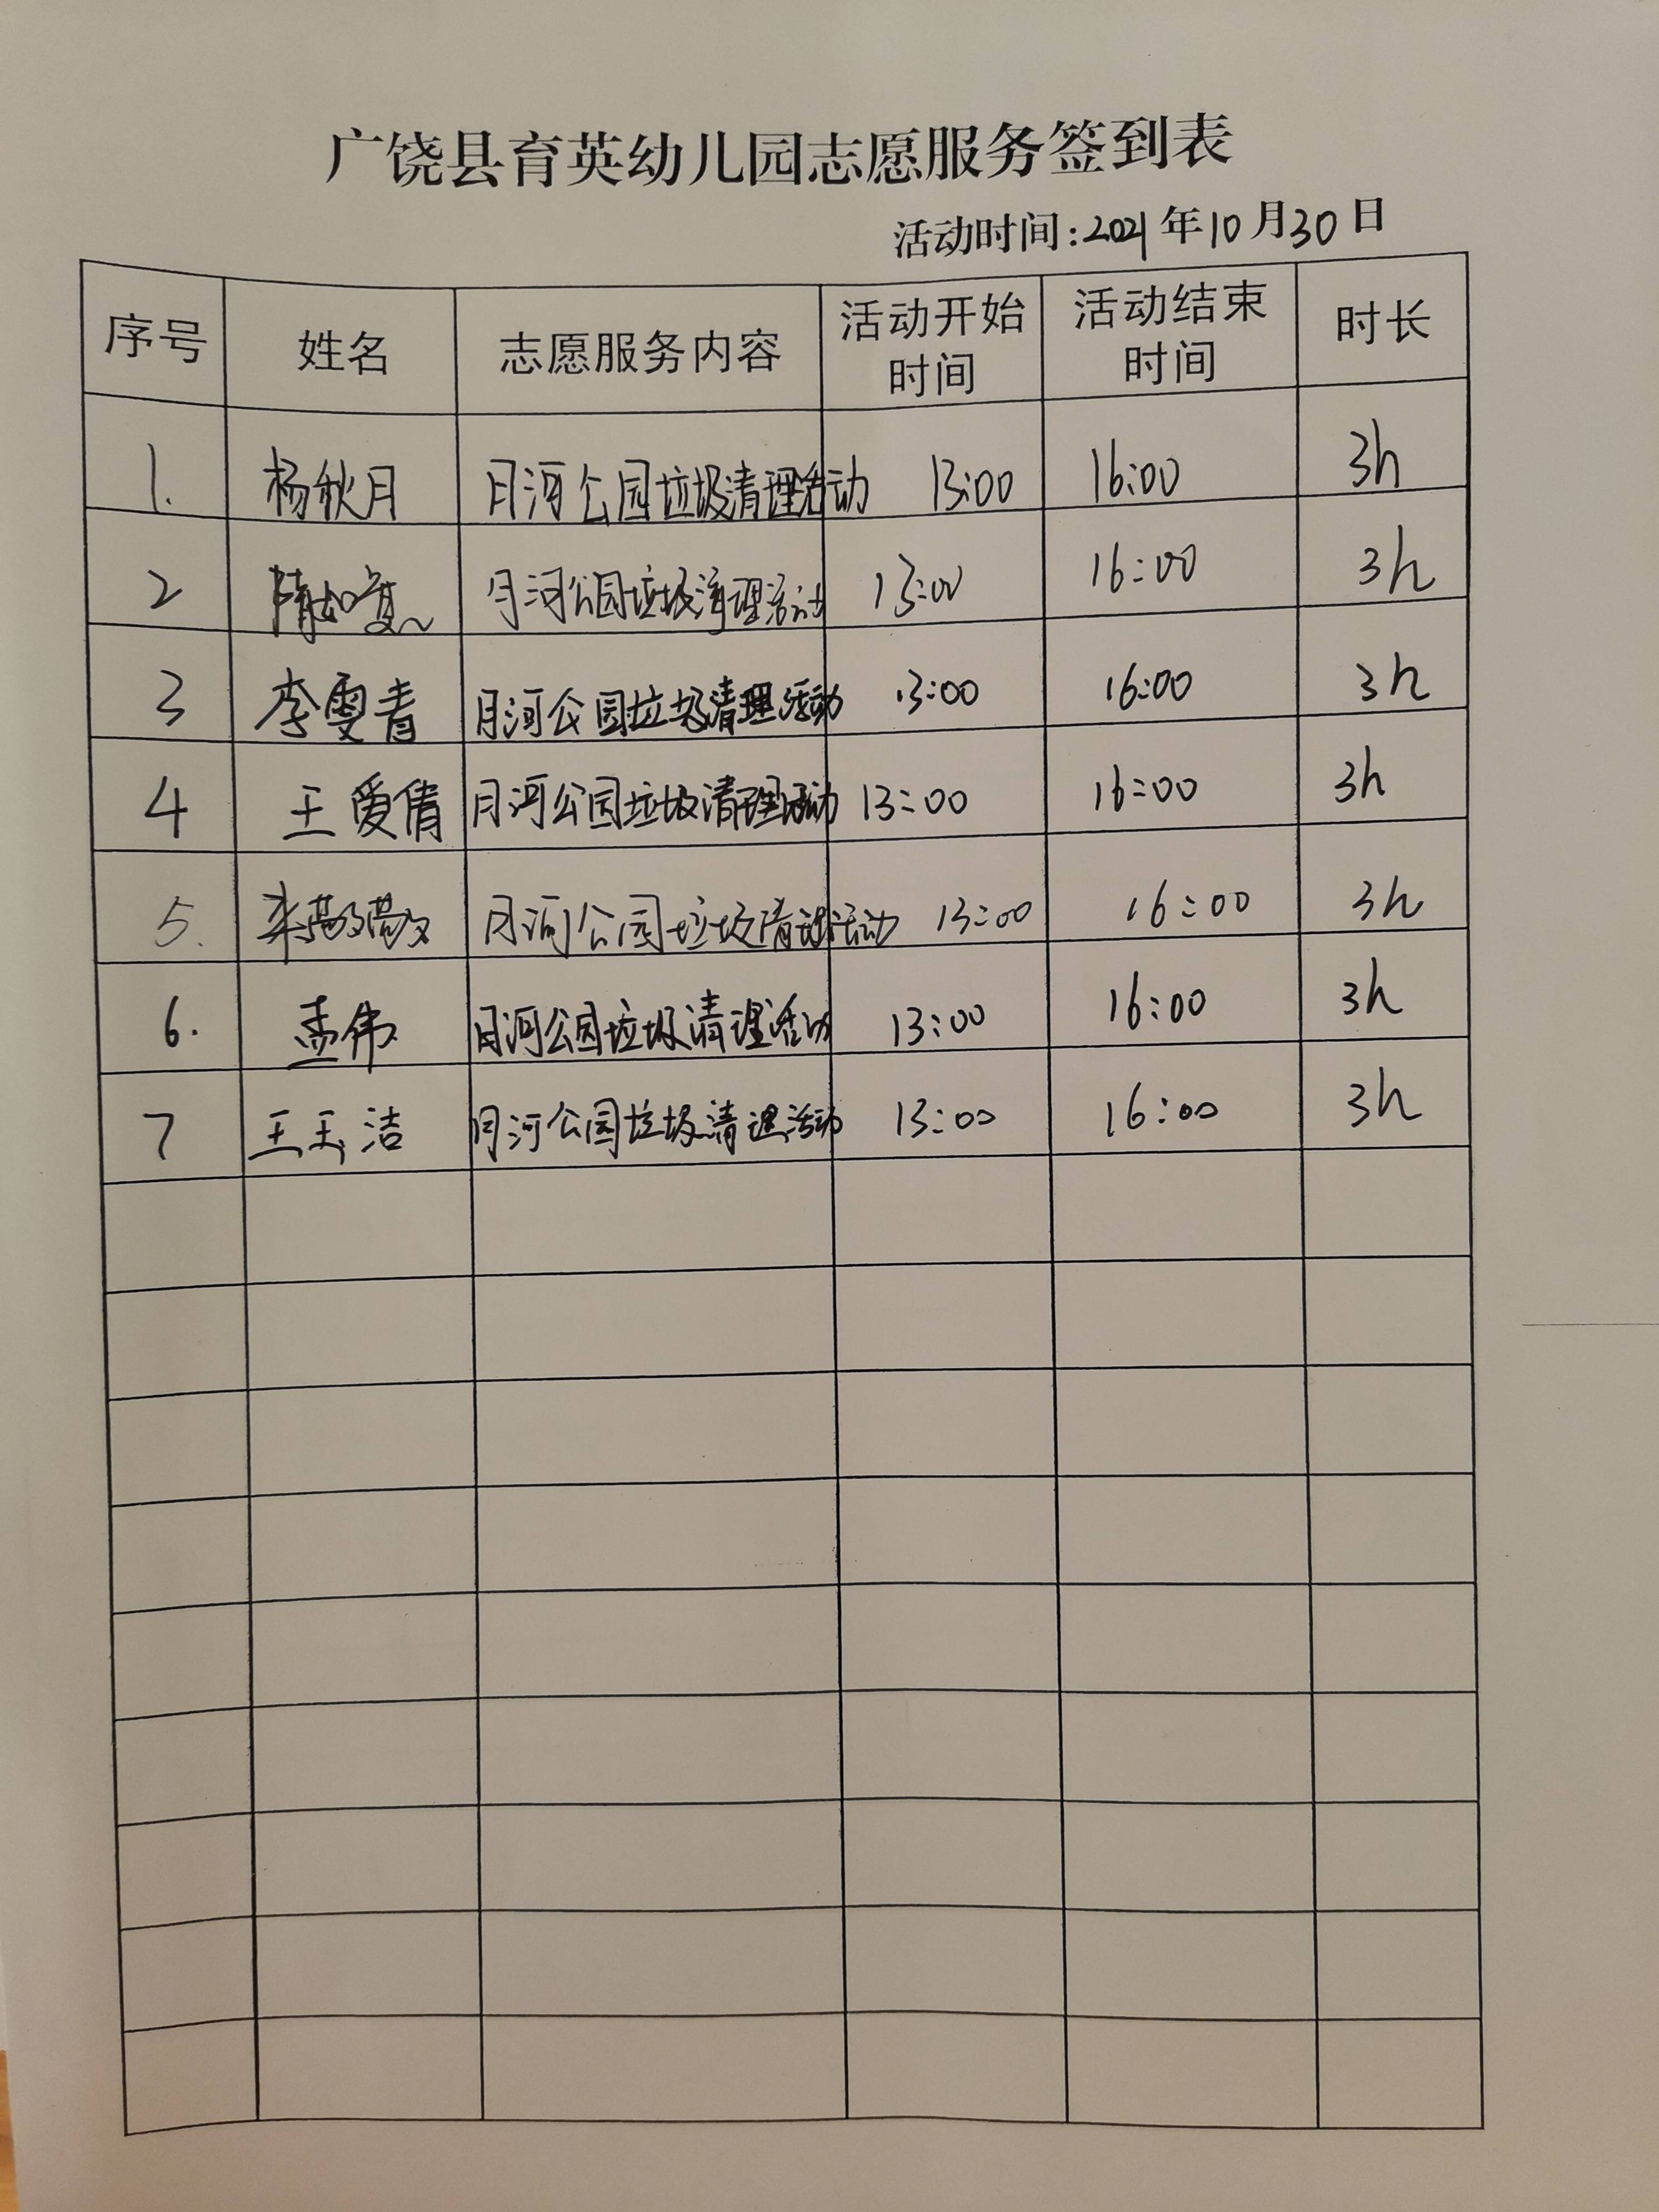 广饶县育英幼儿园志愿服务签到表
活动时间:2021年10月30日
序号 姓名 志愿服务内容 活动开始时间 活动结束时间 时长
1. 杨秋月 月河公园垃圾清理活动 13:00 16:00 3h
2 隋如 月河公园垃圾清理活动 13:00 16:00 3h
3 李雯青 月河公园垃圾清理活动 13:00 16:00 3h
4 王爱倩 月河公园垃圾清理活动 13:00 16:00 3h
5. 月河公园垃圾清理活动 13:00 16:00 3h
6. 孟伟 月河公园垃圾清理活动 13:00 16:00 3h
7 王玉洁 月河公园垃圾清理活动 13:00 16:00 3h